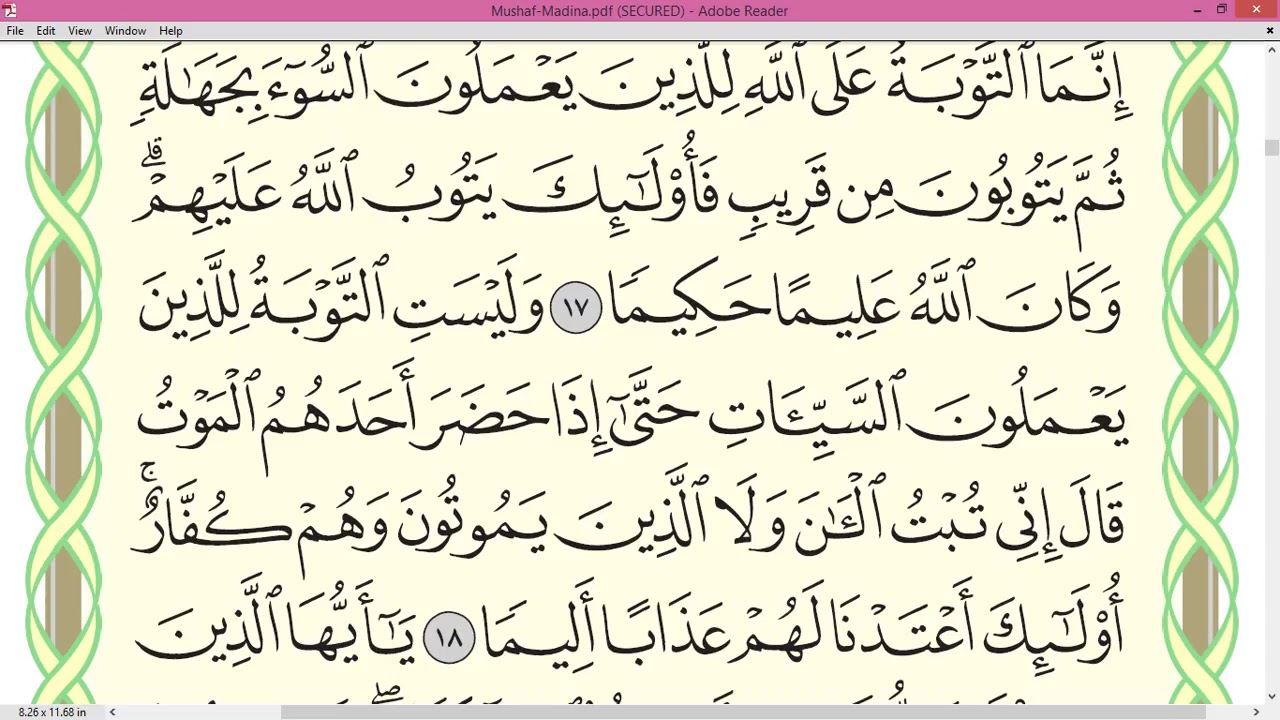 Mushaf-Madina.pdf (SECURED) - Adobe Reader
File Edit View Window Help
إِنَّمَا ٱلتَّوْبَةُ عَلَى ٱللَّهِ لِلَّذِينَ يَعْمَلُونَ ٱلسُّوٓءَ بِجَهَـٰلَةٍ
ثُمَّ يَتُوبُونَ مِن قَرِيبٍ فَأُو۟لَـٰٓئِكَ يَتُوبُ ٱللَّهُ عَلَيْهِمْ ۗ
وَكَانَ ٱللَّهُ عَلِيمًا حَكِيمًا ١٧ وَلَيْسَتِ ٱلتَّوْبَةُ لِلَّذِينَ
يَعْمَلُونَ ٱلسَّيِّـَٔاتِ حَتَّىٰٓ إِذَا حَضَرَ أَحَدَهُمُ ٱلْمَوْتُ
قَالَ إِنِّى تُبْتُ ٱلْـَٔـٰنَ وَلَا ٱلَّذِينَ يَمُوتُونَ وَهُمْ كُفَّارٌ ۚ
أُو۟لَـٰٓئِكَ أَعْتَدْنَا لَهُمْ عَذَابًا أَلِيمًا ١٨ يَـٰٓأَيُّهَا ٱلَّذِينَ
8.26 x 11.68 in